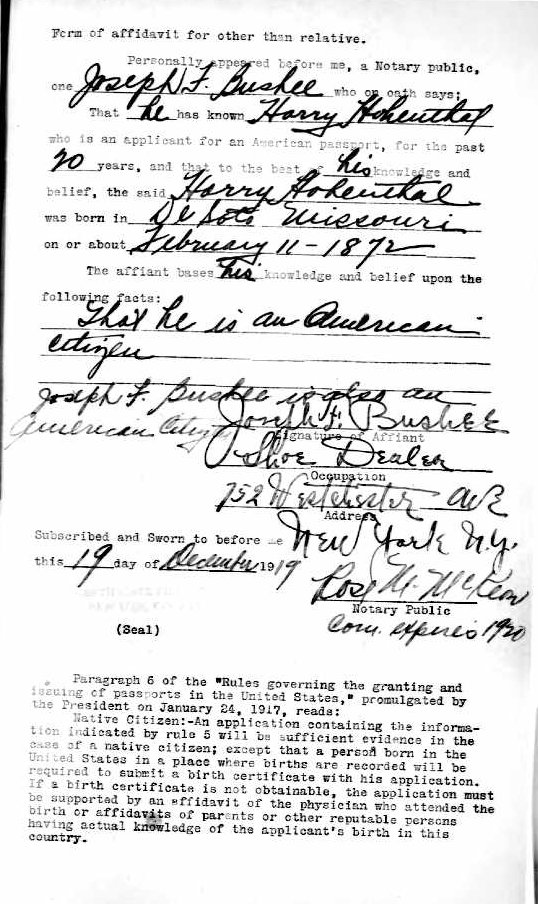 Form of affidavit for other than relative.
Personally appeared before me, a Notary public,
one Joseph F. Bushee who on oath says;
That he has known Harry Hohenthal
who is an applicant for an American passport, for the past
20 years, and that to the best of his knowledge and
belief, the said Harry Hohenthal
was born in De Soto Missouri
on or about February 11-1872
The affiant bases his knowledge and belief upon the
following facts:
That he is an American
citizen
Joseph F. Bushee is also an
American Citizen
Joseph F. Bushee
Signature of Affiant
Shoe Dealer
Occupation
752 Westchester Ave
Address
New York N.Y.
Subscribed and Sworn to before me
this 19 day of December 1919
Rose M. McKeon
Notary Public
(Seal)
Com. expires 1920
Paragraph 6 of the "Rules governing the granting and
issuing of passports in the United States," promulgated by
the President on January 24, 1917, reads:
Native Citizen:-An application containing the informa-
tion indicated by rule 5 will be sufficient evidence in the
case of a native citizen; except that a person born in the
United States in a place where births are recorded will be
required to submit a birth certificate with his application.
If a birth certificate is not obtainable, the application must
be supported by an affidavit of the physician who attended the
birth or affidavits of parents or other reputable persons
having actual knowledge of the applicant's birth in this
country.